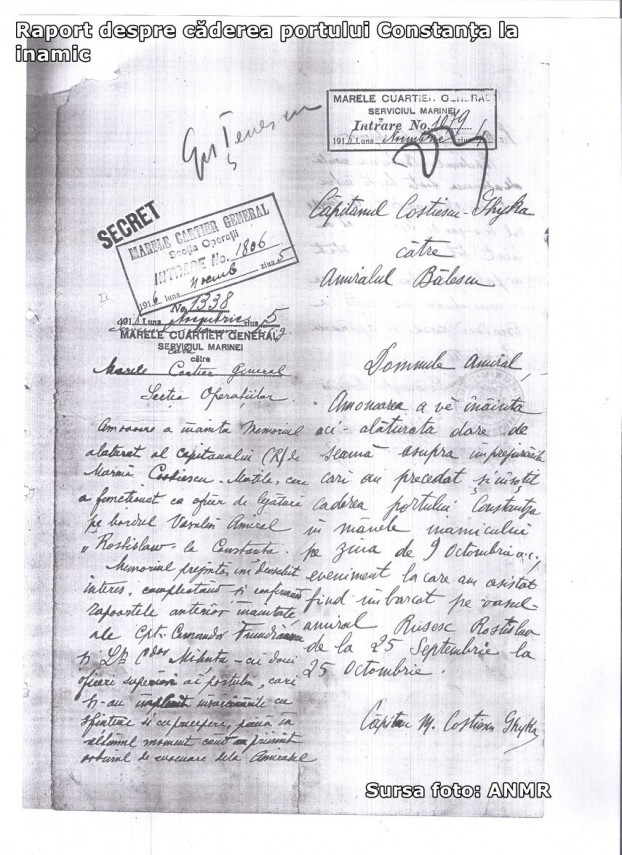 Raport despre căderea portului Constanța la
inamic
MARELE CUARTIER GENERAL
SERVICIUL MARINEI
Intrare No. 1079
191
SECRET
MARELE CARTIER GENERAL
Secția Operații
INTRARE No. 1806
1916 luna Noemb ziua 5
No 1338
191 Luna ziua 5
MARELE CUARTIER GENERAL
SERVICIUL MARINEI
către
Marele Cartier General
Secția Operațiilor
Am onoare a înainta Memoriul
alăturat al capitanului (R) de
Marină Costiescu-Matila care
a funcționat ca ofițer de legătură
pe bordul Vasului Amiral
„Rostislaw" la Constanta.
Memoriul prezintă un deosebit
interes, complectând și confirmând
rapoartele anterior înaintate
ale Cpt. Comandor
și Mihuța - cei doui
ofițeri superiori ai portului, cari
și-au împlinit însărcinările cu
și cu pricepere, până în
ultimul moment când au primit
ordinul de evacuare dela Amiralul
Căpitanul Costiescu-Ghyka
către
Amiralul Bălescu
Domnule Amiral,
Am onoarea a vă înainta
aci-alăturata dare de
seamă asupra împrejurărilor
cari au precedat și însoțit
caderea portului Constanța
în mânele inamicului
pe ziua de 9 Octombrie a.c.,
eveniment la care am asistat
fiind îmbarcat pe vasul-
amiral Rusesc Rostislav
de la 25 Septembrie la
25 Octombrie.
Căpitan M. Costiescu Ghyka
Sursa foto: ANMR